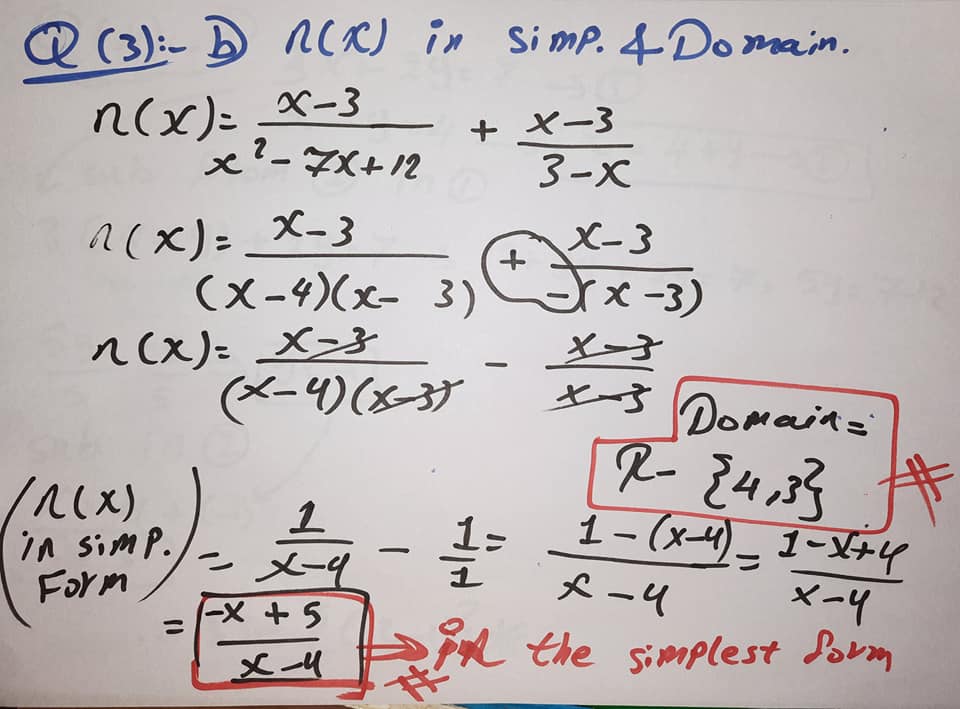 Q (3):- b) n(x) in simp. & Domain.
n(x)= x-3 / x²-7x+12 + x-3 / 3-x
n(x)= x-3 / (x-4)(x-3) + x-3 / -(x-3)
n(x)= x-3 / (x-4)(x-3) - x-3 / x-3
Domain=
R- {4,3}
(n(x) in simp. Form) = 1 / x-4 - 1 / 1 = 1-(x-4) / x-4 = 1-x+4 / x-4
= -x+5 / x-4 → in the simplest form